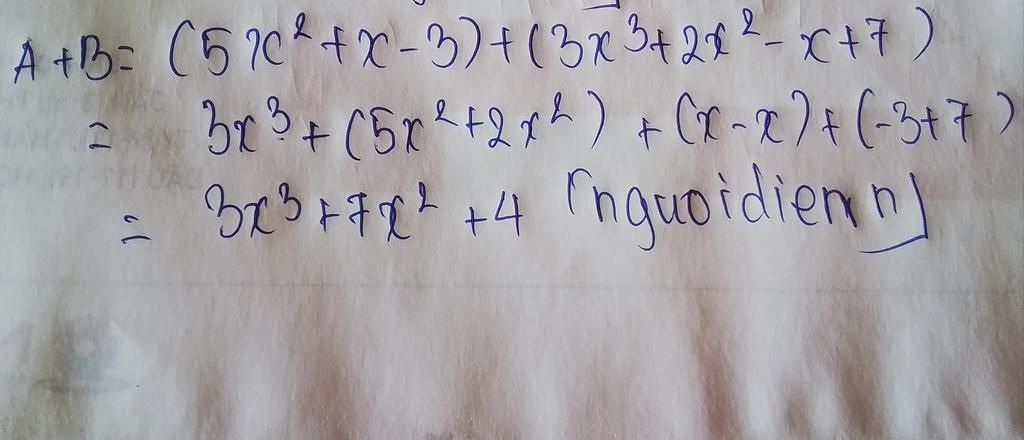 A+B= (5x²+x-3)+(3x³+2x²-x+7)
= 3x³+(5x²+2x²)+(x-x)+(-3+7)
= 3x³+7x²+4 (nguoidien n)